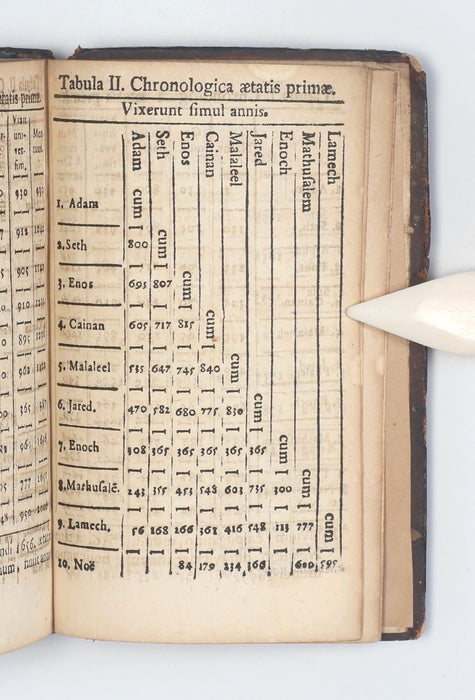 Tabula II. Chronologica ætatis primæ.
Vixerunt ſimul annis.
Adam Seth Enos Cainan Malaleel Jared Enoch Mathuſalem Lamech
1. Adam cum
2. Seth 800 cum
3. Enos 695 807 cum
4. Cainan 605 717 815 cum
5. Malaleel 535 647 745 840 cum
6. Jared. 470 582 680 775 830 cum
7. Enoch 308 365 365 365 365 365 cum
8. Mathuſalē. 243 355 453 548 603 735 300 cum
9. Lamech. 56 168 266 361 416 548 113 777 cum
10. Noë 84 179 234 366 600 595